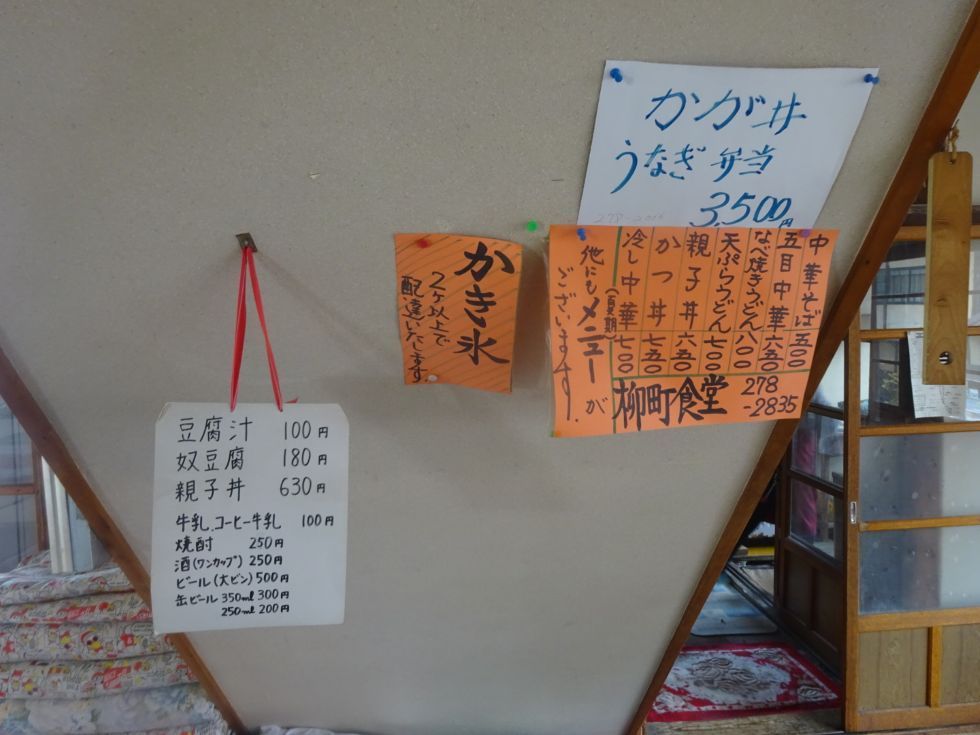 カンガ丼
うなぎ弁当
3,500円
中華そば 五〇〇
五目中華 六五〇
なべ焼きうどん 八〇〇
天ぷらうどん 七〇〇
親子丼 六五〇
かつ丼 七五〇
冷し中華(夏期) 七〇〇
他にもメニューが
ございます。
柳町食堂 278
-2835
かき氷
2ヶ以上で
配達いたします
豆腐汁 100円
奴豆腐 180円
親子丼 630円
牛乳、コーヒー牛乳 100円
焼酎 250円
酒(ワンカップ) 250円
ビール(大ビン) 500円
缶ビール 350ml 300円
250ml 200円